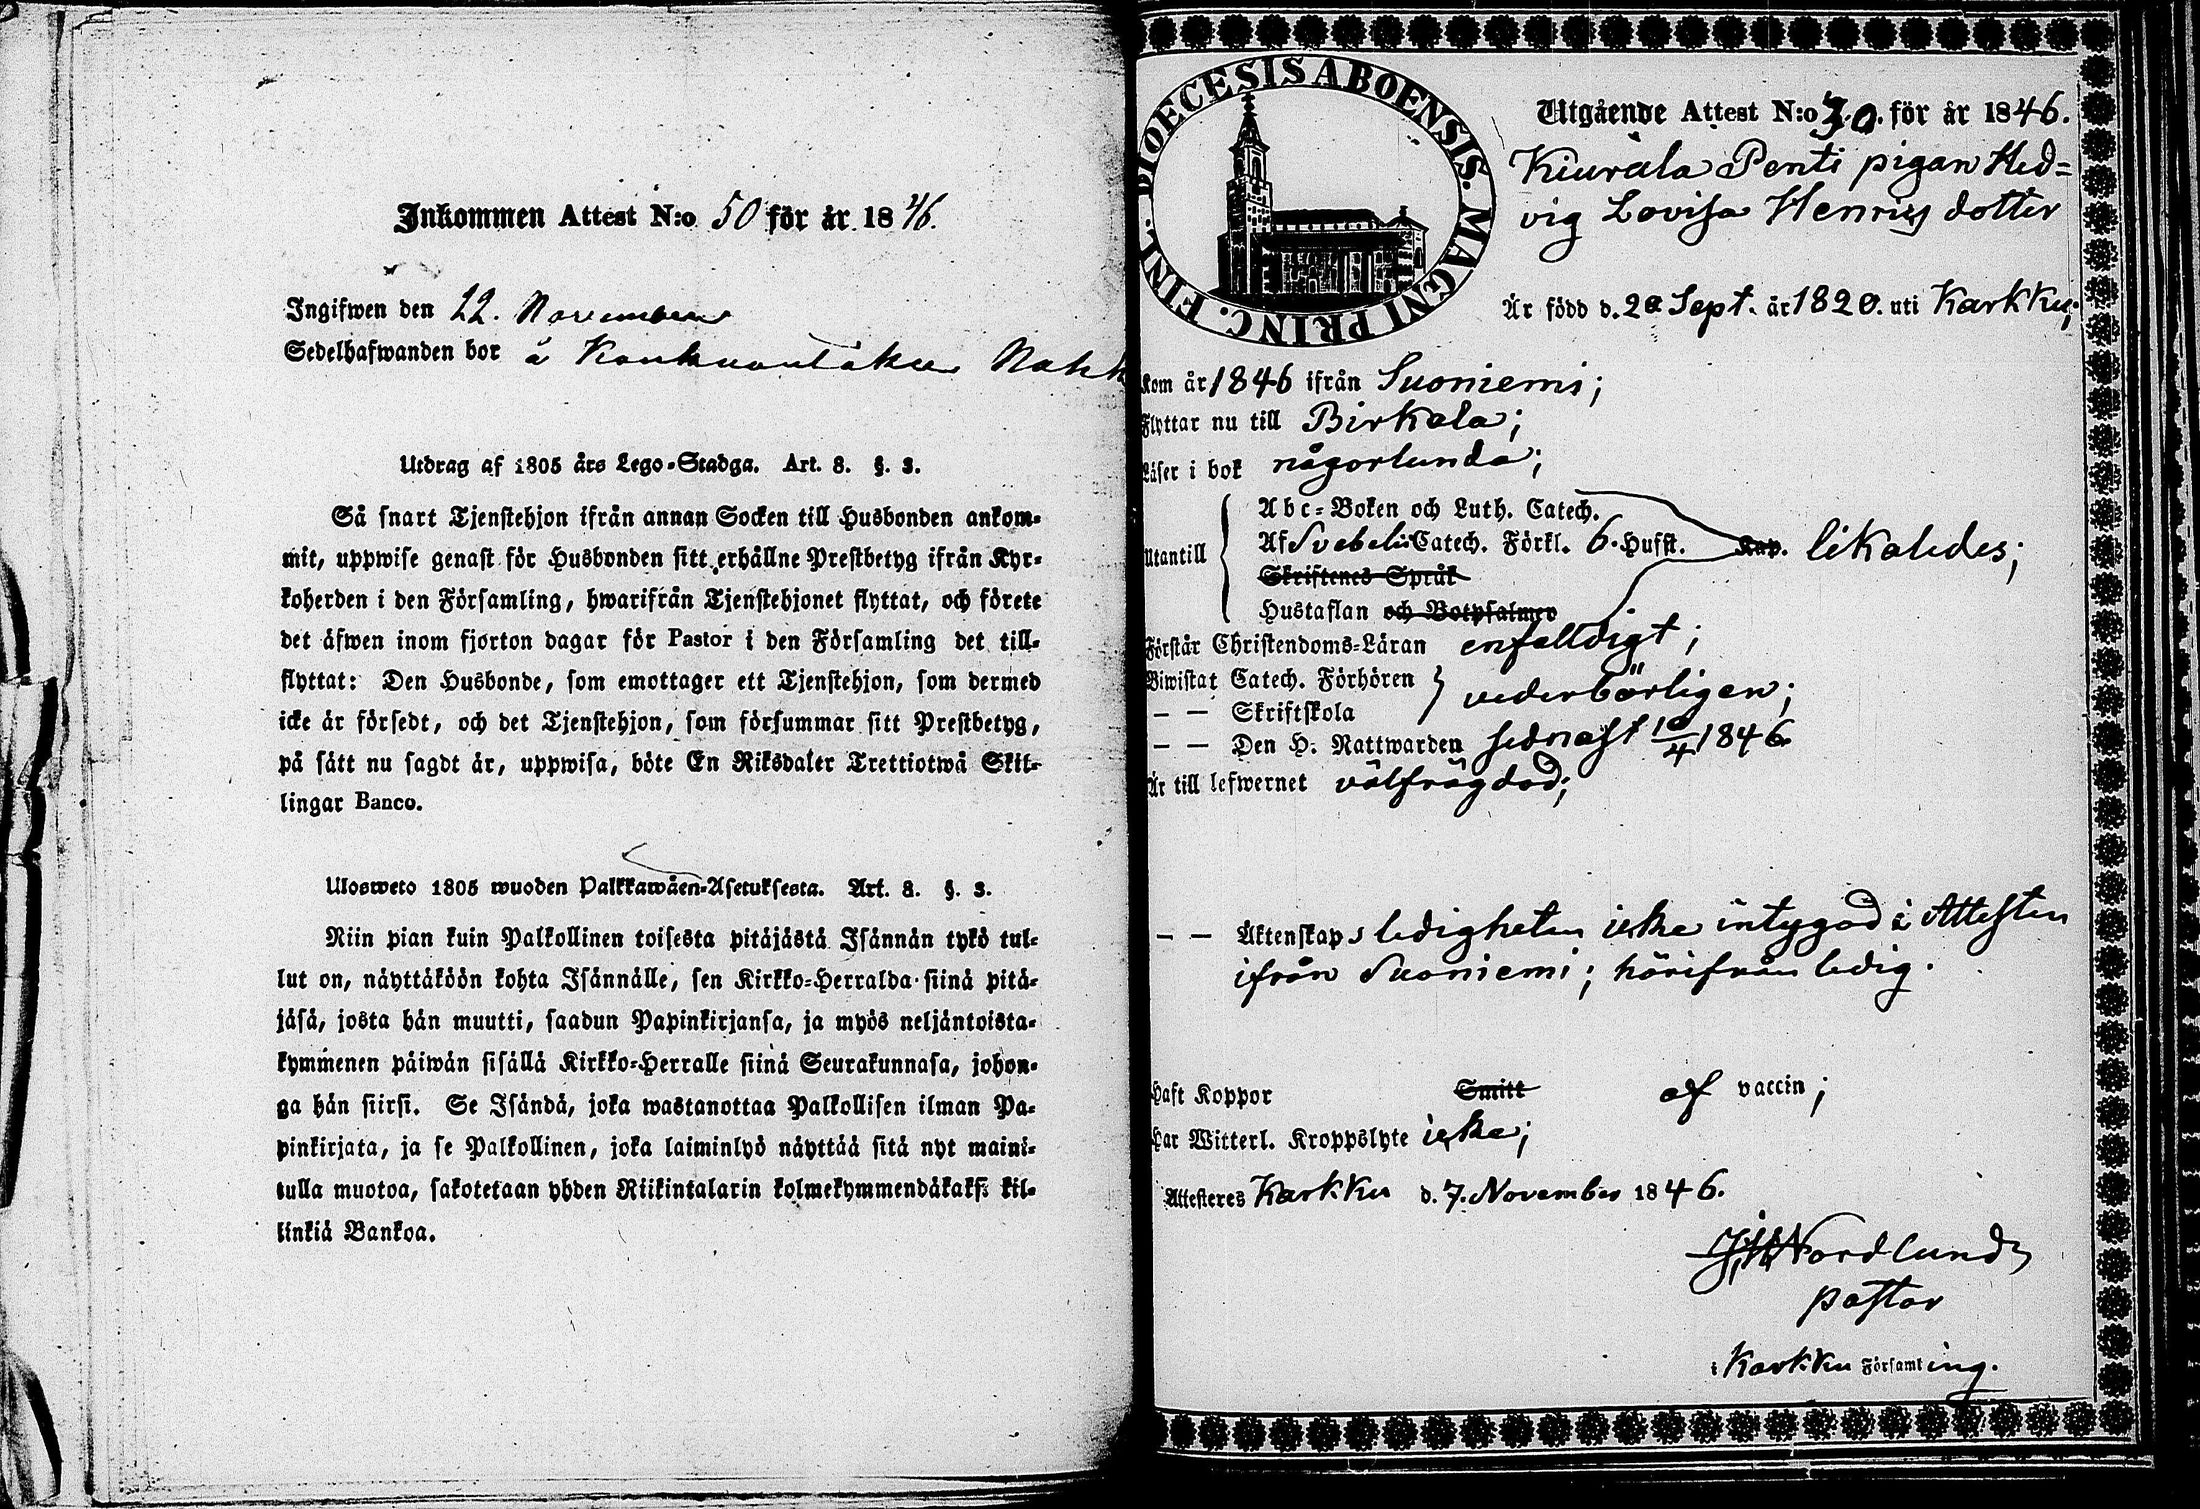 Inkommen Attest N:o 50 för år 1846.
Ingifwen den 22. November
Sedelhafwanden bor å
Utdrag af 1805 års Lego-Stadga. Art. 8. §. 3.
Så snart Tjenstehjon ifrån annan Socken till Husbonden ankom-
mit, uppwise genast för Husbonden sitt erhållne Prestbetyg ifrån Kyr-
koherden i den Församling, hwarifrån Tjenstehjonet flyttat, och förete
det äfwen inom fjorton dagar för Pastor i den Församling det till-
flyttat: Den Husbonde, som emottager ett Tjenstehjon, som dermed
icke är försedt, och det Tjenstehjon, som försummar sitt Prestbetyg,
på sätt nu sagdt är, uppwisa, böte En Riksdaler Trettiotwå Skil-
lingar Banco.
Ulosweto 1805 wuoden Palkkawäen-Asetuksesta. Art. 8. §. 3.
Niin pian kuin Palkollinen toisesta pitäjästä Isännän tykö tul-
lut on, näyttäköön kohta Isännälle, sen Kirkko-Herralda siinä pitä-
jäsä, josta hän muutti, saadun Papinkirjansa, ja myös neljäntoista-
kymmenen päiwän sisällä Kirkko-Herralle siinä Seurakunnasa, johon-
ga hän siirsi. Se Isändä, joka wastanottaa Palkollisen ilman Pa-
pinkirjata, ja se Palkollinen, joka laiminlyö näyttää sitä nyt maini-
tulla muotoa, sakotetaan yhden Riikintalarin kolmekymmendäkaksi kil-
linkiä Bankoa.
DIOECESIS ABOENSIS. MAGNI PRINC. FINL.
Utgående Attest N:o 30. för år 1846.
Kiurala Penti pigan Hed-
vig Lovisa Henrics dotter
Är född d. 20 Sept. år 1820. uti Karkku;
Kom år 1846 ifrån Suoniemi;
Flyttar nu till Birkala;
Läser i bok någorlunda;
Utantill
Abc-Boken och Luth. Catech.
Af Svebelii Catech. Förkl. 6. Hufst. Kap. likaledes;
Skriftenes Språk
Hustaflan och Botpsalmer
Förstår Christendoms-Läran enfalldigt;
Biwistat Catech. Förhören } vederbörligen;
— — Skriftskola
— — Den H. Nattwarden sednast 10/4 1846.
Är till lefwernet välfrägdad;
— — Äktenskaps ledigheten icke intygad i Attesten
ifrån Suoniemi; härifrån ledig.
Haft Koppor Smitt af vaccin;
Har Witterl. Kroppslyte icke;
Attesteres Karkku d. 7. November 1846.
Nordlund
pastor
i Karkku Församling.